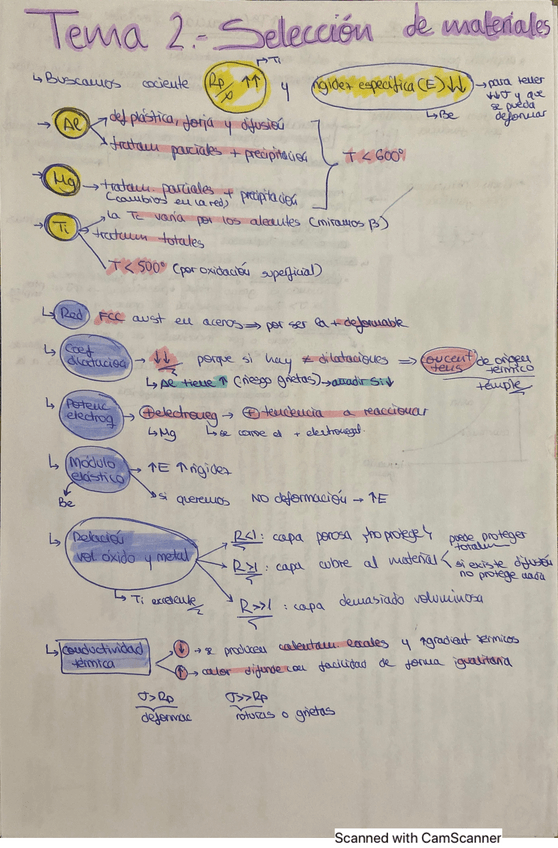 Tema 2.- Selección de materiales
→ Ti
↳ Buscamos cociente Rp/ρ ↑↑ y rigidez específica (E) ↓↓ → para tener ↓↓σ y que se pueda deformar
↳ Be
→ Al → def plástica, forja y difusión
→ tratam parciales + precipitación
T < 600°
→ Mg → tratam parciales + precipitación
(cambios en la red)
→ Ti → la Tc varía por los aleantes (miramos β)
→ tratam totales
T < 500° (por oxidación superficial)
↳ Red FCC aust en aceros ⇒ por ser la + deformable
↳ Coef dilatación → ↓↓ porque si hay ≠ dilataciones ⇒ concent tens de origen térmico
temple
↳ Al tiene ↑ (riesgo grietas) → añadir Si ↓
↳ Potenc electroq → ⊕ electroneg → ⊕ tendencia a reaccionar
↳ Mg ↳ se corroe el + electronegat.
↳ Módulo elástico → ↑E ↑rigidez
→ si queremos NO deformación → ↑E
Be
↳ Relación vol. óxido y metal
R<1: capa porosa ¡no protege!
R≥1: capa cubre al material < puede proteger totalm
si existe difusión no protege nada
R>>1: capa demasiado voluminosa
↳ Ti excelente
↳ conductividad térmica
↓ → se producen calentam locales y ↑gradient térmicos
↑ → calor difunde con facilidad de forma igualitaria
σ>Rp σ>>Rp
deformac roturas o grietas
Scanned with CamScanner